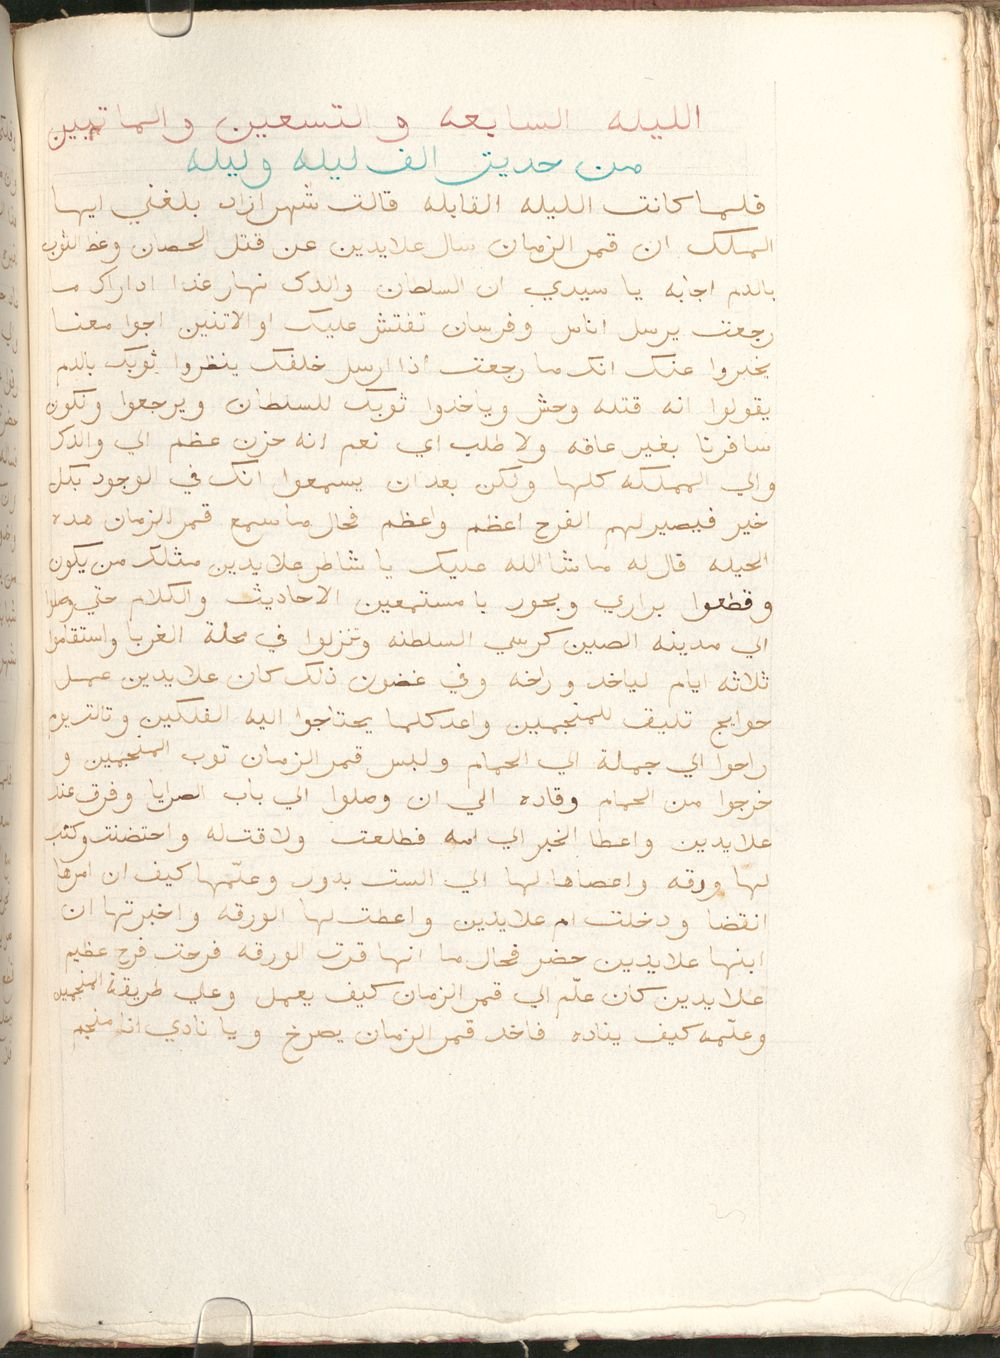 الليله السابعه والتسعين والماتيين
من حديث الف ليله وليله
فلما كانت الليله القابله قالت شهرازاد بلغني ايها
الملك ان قمر الزمان سال علايدين عن قتل الحصان وغط الثوب
بالدم اجابه يا سيدي ان السلطان والدك نهار غدا ادا راك ما
رجعت يرسل اناس وفرسان تفتش عليك او الاتنين اجوا معنا
يخبروا عنك انك ما رجعت أذا ارسل خلفك ينظروا ثوبك بالدم
يقولوا انه قتله وحش وياخدوا ثوبك للسلطان ويرجعوا ونكون
سافرنا بغير عاقه ولا طلب اي نعم انه حزن عظم الي والدك
والي المملكه كلها ولكن بعد ان يسمعوا انك في الوجود بكل
خير فيصير لهم الفرح اعظم واعظم فحال ما سمع قمر الزمان هده
الحيله قال له ماشاالله عليك يا شاطر علايدين مثلك من يكون
وقطعوا براري وبحور يا مستمعين الاحاديث والكلام حتي وصلوا
الي مدينه الصين كرسي السلطنه وتنزلوا في محلة الغربا واستقاموا
ثلاثه ايام لياخد وراخه وفي غضون ذلك كان علايدين عمل
حوايج تليق للمنجمين واعد كلما يحتاجوا اليه الفلكين وتالت يوم
راحوا الي جملة الي الحمام ولبس قمر الزمان توب المنجمين و
خرجوا من الحمام وقاده الي ان وصلوا الي باب الصرايا وفرق عند
علايدين واعطا الخبر الي امه فطلعت ولاقت له واحتضنت وكتب
لها ورقه واعصاها لها الي الست بدور وعلّمها كيف ان امرها
انقضا ودخلت ام علايدين واعطت لها الورقه واخبرتها ان
ابنها علايدين حضر فحال ما انها قرت الورقه فرحت فرح عظيم
علايدين كان علّم الي قمر الزمان كيف يعمل وعلي طريقة المنجمين
وعلّمه كيف يناده فاخد قمر الزمان يصرخ ويا نادي انا منجم